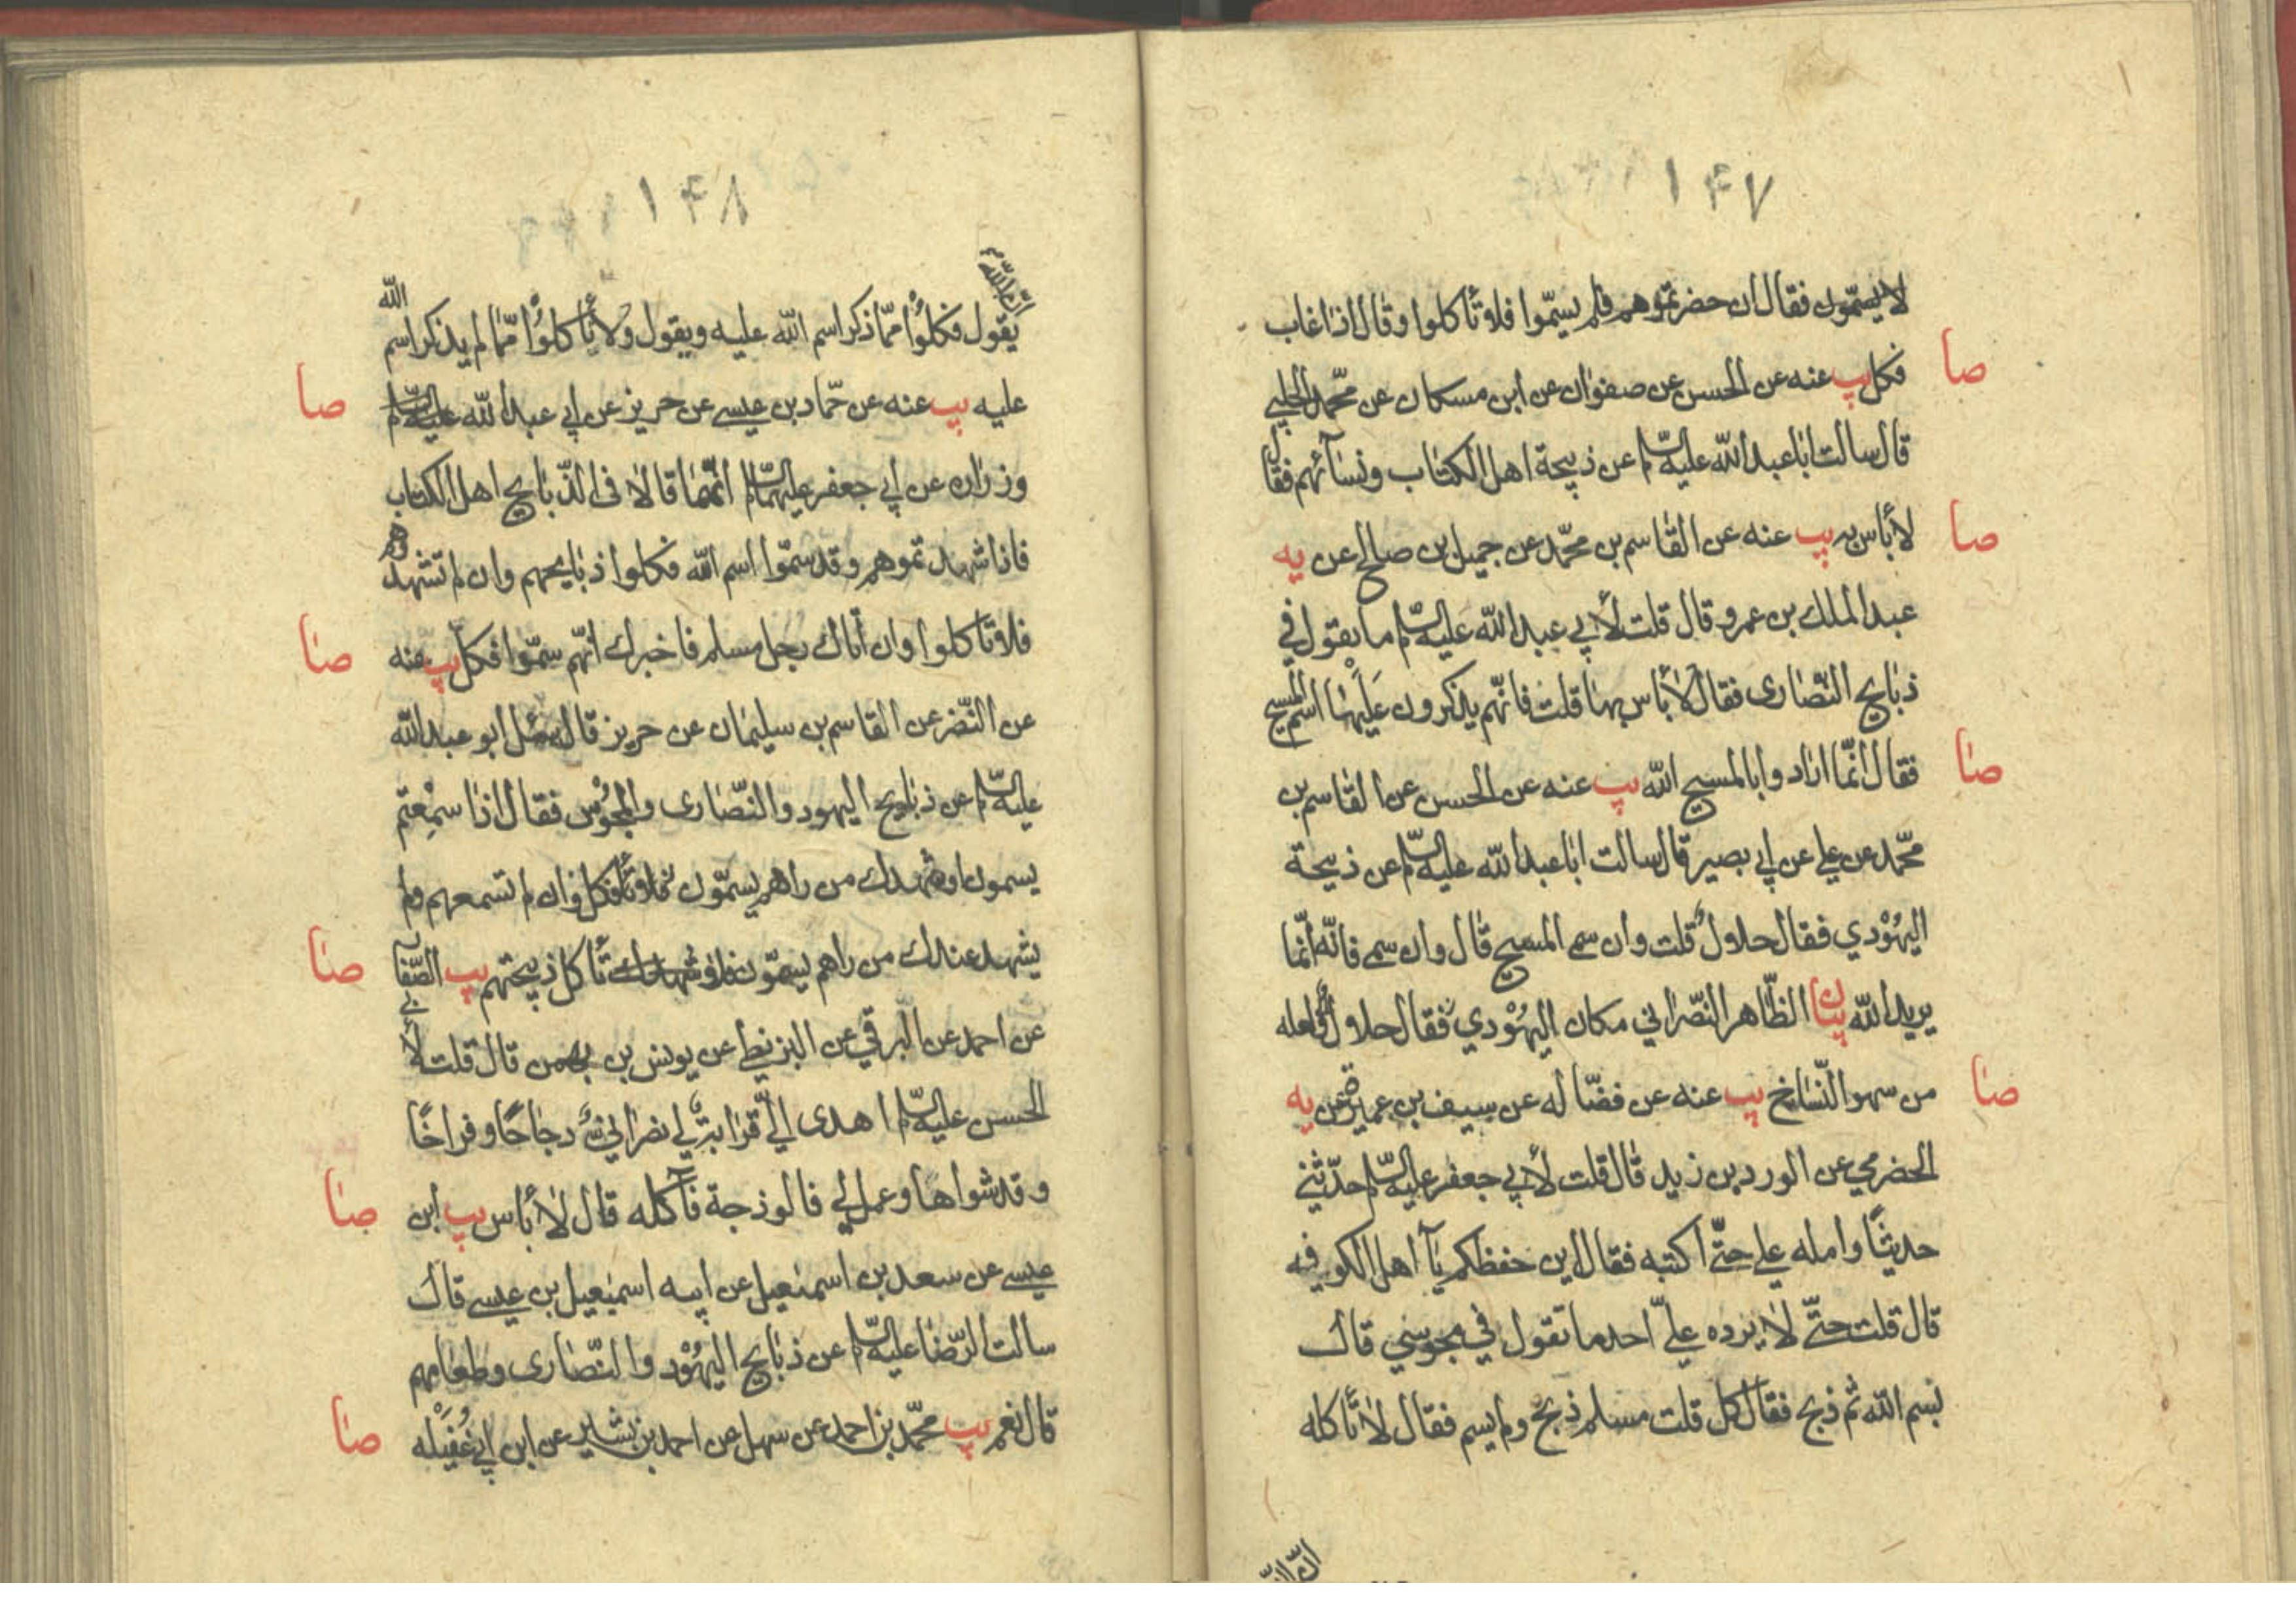 ١٤٧
لا يسمّون فقال ان حضرتموهم فلم يسمّوا فلا تأكلوا وقال اذا غاب
فكل يب عنه عن الحسن عن صفوان عن ابن مسكان عن محمّد الحلبي
صا
قال سالت ابا عبد الله عليه السّلم عن ذبيحة اهل الكتاب ونسآئهم فقال
لا بأس به يب عنه عن القاسم بن محمّد عن جميل بن صالح عن يه
صا
عبد الملك بن عمرو قال قلت لأبي عبد الله عليه السّلم ما تقول في
ذبايح النّصارى فقال لا بأس بها قلت فانّهم يذكرون عليها اسم المسيح
فقال انّما ارادوا بالمسيح الله يب عنه عن الحسن عن القاسم بن
صا
محمّد عن علي عن ابي بصير قال سالت ابا عبد الله عليه السّلم عن ذبيحة
اليهودي فقال حلال قلت وان سمى المسيح قال وان سمى فانّه انّما
يريد الله بيان الظّاهر النّصراني مكان اليهودي فقال حلال ولعله
من سهو النّساخ يب عنه عن فضاله عن سيف بن عميرة عن يه
صا
الحضرمي عن الورد بن زيد قال قلت لأبي جعفر عليه السّلم حدّثني
حديثا وامله علي حتّى اكتبه فقال اين حفظكم يا اهل الكوفه
قال قلت حتّى لا يردّه عليّ احد ما تقول في مجوسي قال
بسم الله ثم ذبح فقال كل قلت مسلم ذبح ولم يسم فقال لا تأكله
١٤٨
انّ الله
يقول فكلوا ممّا ذكر اسم الله عليه ويقول ولا تأكلوا ممّا لم يذكر اسم الله
عليه يب عنه عن حمّاد بن عيسى عن حريز عن ابي عبد الله عليه السّلم
صا
وزراره عن ابي جعفر عليهما السّلم انّهما قالا في الذّبايح اهل الكتاب
فاذا شهدتموهم وقد سمّوا اسم الله فكلوا ذبايحهم وان لم تشهدوهم
فلا تأكلوا وان اتاك رجل مسلم فاخبرك انّهم سمّوا فكل يب عنه
صا
عن النّضر عن القاسم بن سليمان عن حريز قال سئل ابو عبد الله
عليه السّلم عن ذبايح اليهود والنّصارى والمجوس فقال اذا سمعتم
يسمون او شهد لك من راهم يسمّون فكل وان لم تسمعهم ولم
يشهد عندك من راهم يسمّون فلا تأكل ذبيحتهم يب الصّفا
صا
عن احمد عن البرقي عن البزنطي عن يونس بن بهمن قال قلت لأبي
الحسن عليه السّلم اهدى اليّ قرابة لي نصراني دجاجا وفراخا
وقد شواها وعمل لي فالوذجة فآكله قال لا بأس يب ابن
صا
عيسى عن سعد بن اسمعيل عن ابيه اسمعيل بن عيسى قال
سالت الرّضا عليه السّلم عن ذبايح اليهود والنّصارى وطعامهم
قال نعم يب محمّد بن احمد عن سهل عن احمد بن بشير عن ابن ابي غفيله
صا